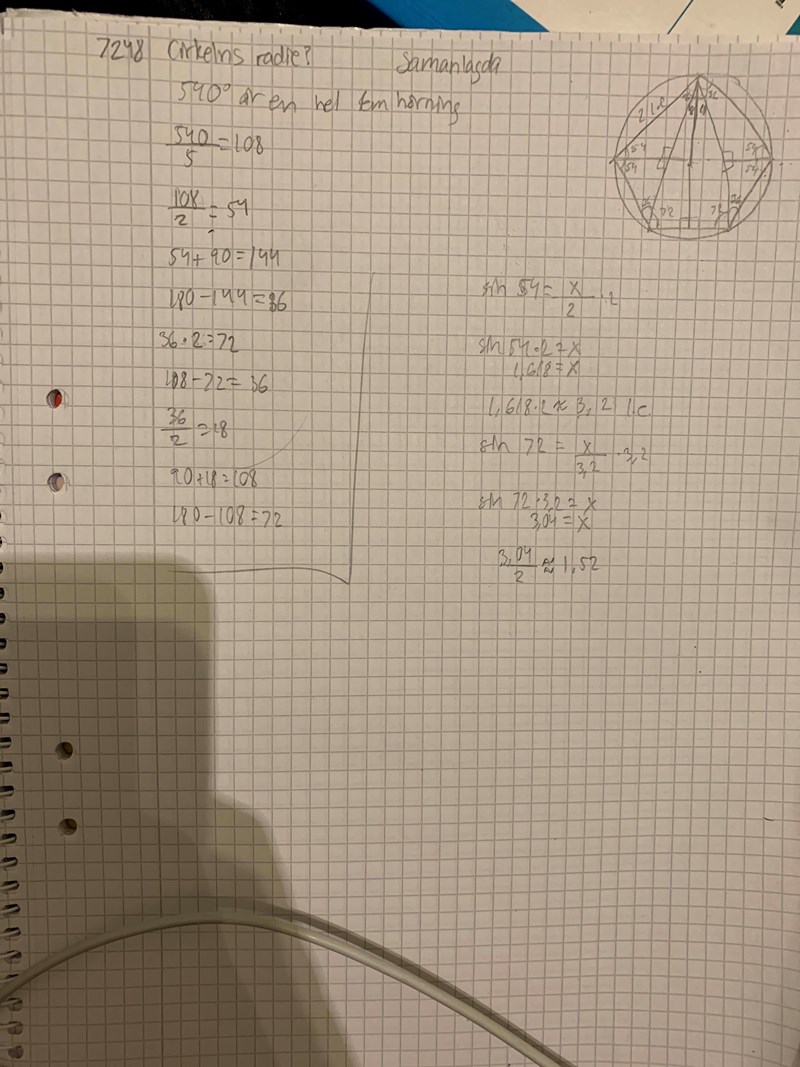 7248 Cirkelns radie? Samanlagda
540° är en hel femhörning
540/5 = 108
108/2 = 54
54+90=144
180-144=36
36·2=72
108-72=36
36/2=18
90+18=108
180-108=72
54
54
54
54
36
72
72
36
sin 54 = x/2 ·2
sin 54·2=x
1,618=x
1,618·2≈3,2 l.c
sin 72 = x/3,2 ·3,2
sin 72·3,2=x
3,04=x
3,04/2 ≈ 1,52